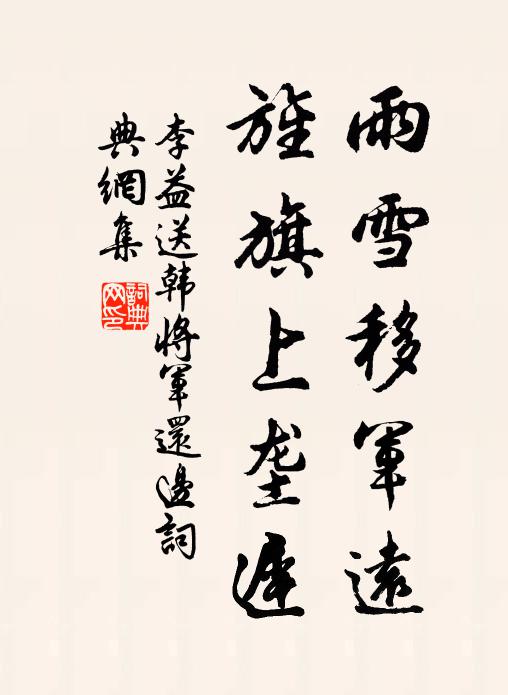 雨雪移軍遠
旌旗上垄遅
李益送韩將軍還邊詞
典網集
詞典
网印